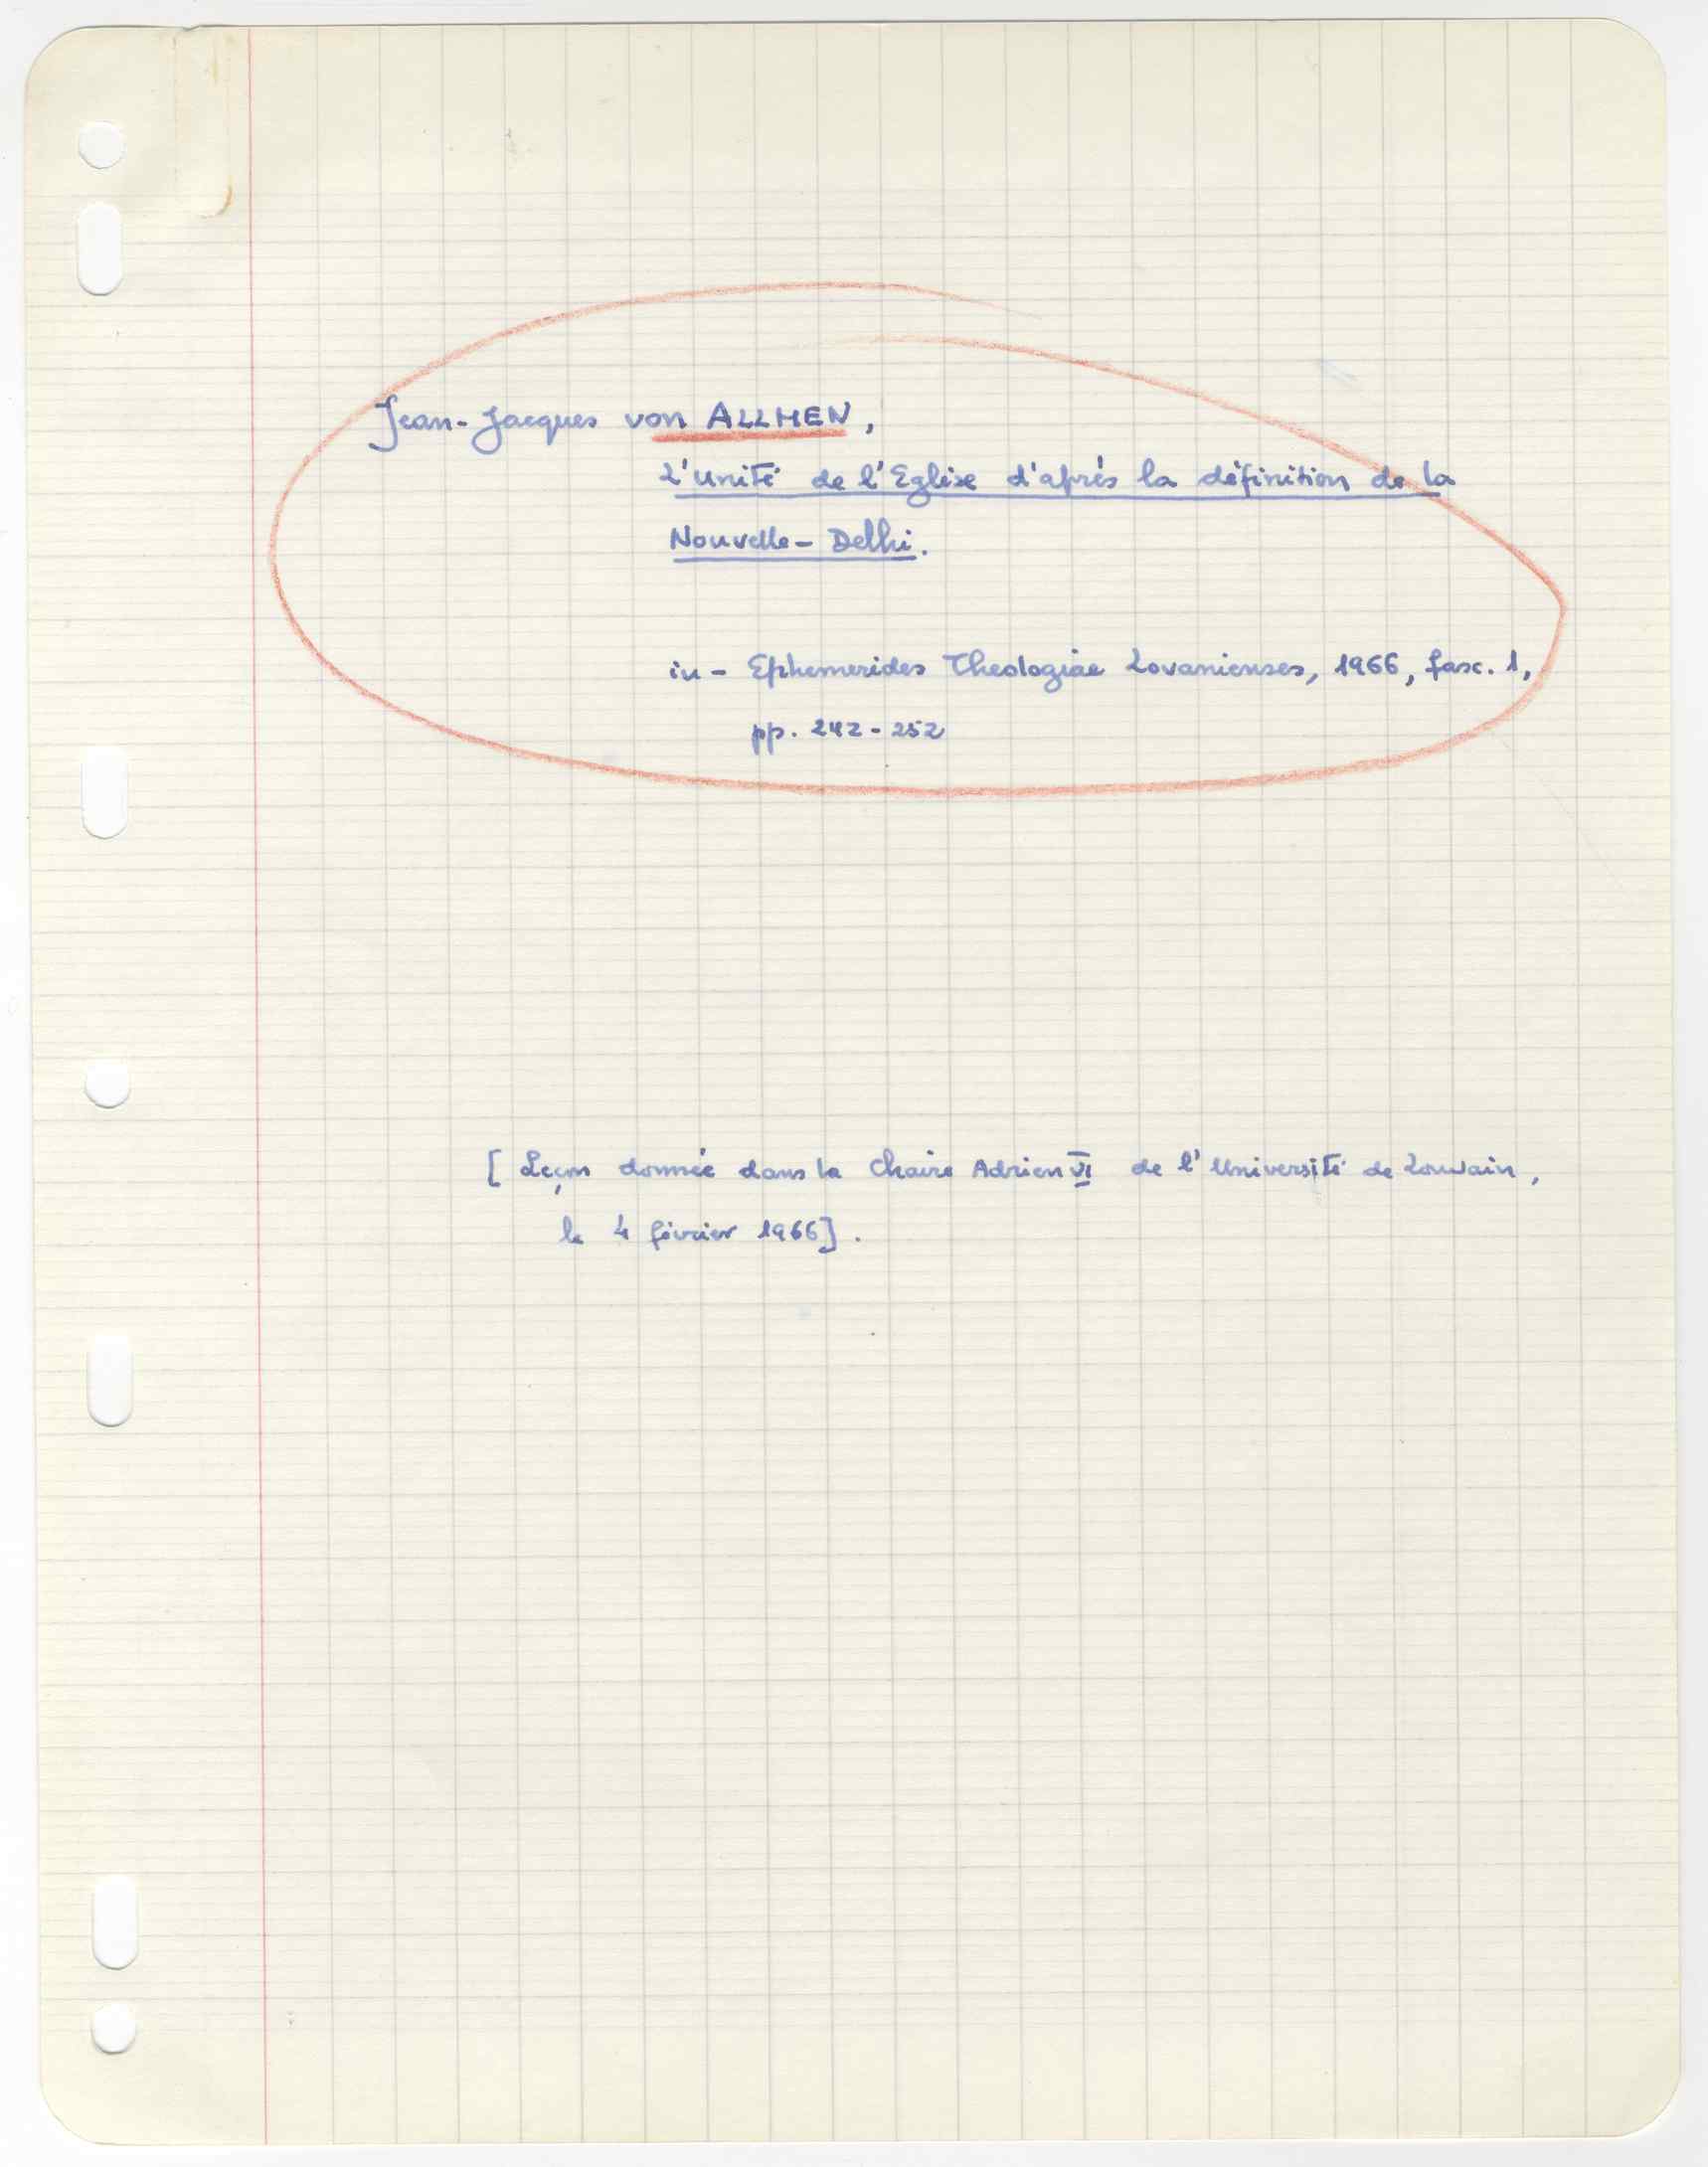 Jean-Jacques von ALLMEN,
L'unité de l'Eglise d'après la définition de la
Nouvelle-Delhi.
in - Ephemerides Theologiae Lovanienses, 1966, fasc. 1,
pp. 242-252
[ Leçon donnée dans la Chaire Adrien VI de l'Université de Louvain,
le 4 février 1966].